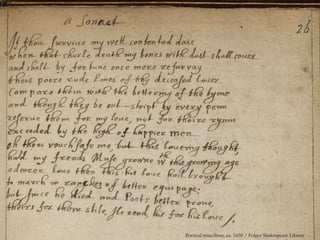 a Sonnet
26
If thou survive my well contented daie
when that charle death my bones with dust shall cover
and shalt by fortune once more resurvay
theis poore rude lines of thy deceased lover
Compare them with the bettering of the tyme
and though they be out-stript by every penn
reserve them for my love, not for theire rym
exceeded by the high of happier men
oh then vouchsafe me but this loveing thought
had my freinds Muse growne wth this growing age
a dearer love then this his love had brought
to march in ranckes of better equipage:
but since he died and Poets better prove,
theirs for their stile, Ile read, his for his love /.
Poetical miscellany, ca. 1630 / Folger Shakespeare Library